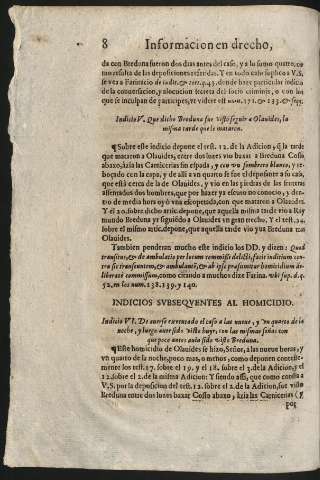 8 Informacion en drecho,
da con Breduna fueron dos antes del caso, y a lo sumo quatro, co
mo resulta de las deposiciones referidas. Y en todo caso suplico a V.S.
se vea a Farinacio de indit. que haze particular indicio
de la conuersacion, y alocucion secreta del socio criminis, o con los
que se inculpan de participes, vt videre est nu. 131. & 133. & seqq.
Indicio V. Que dicho Breduna fue visto seguir a Olauides, la
misma tarde que le mataron.
¶Sobre este indicio depone el test. 12. de la Adicion, q̃ la tarde
que mataron a Olauides, entre dos luzes vio baxar a Breduna Cosso
abaxo, àzia las Carnicerias sin espada, y con vn sombrero blanco, y re-
boçado con la capa, y de alli a vn quarto se fue el deposante a su casa,
que está cerca de la de Olauides, y vio en las piedras de las fronteras
assentados dos hombres, que por hazer ya escuro no conocio, y den-
tro de media hora oyò vna escopetada, con que mataron a Olauides.
Y el 20. sobre dicho artic. depone, que aquella misma tarde vio a Ray
mundo Breduna yr siguiẽdo a Olauides vn gran trecho. Y el test. 34.
sobre el mismo artic. depone, que aquella tarde vio yua Breduna tras
Olauides.
Tambien ponderan mucho este indicio los DD. y dizen: Quod
transitus, & de ambulatio per locum commissi delicti, facit indicium con-
tra sic transeuntem, & ambulantẽ, & ab ipso præsumitur homicidium de-
liberatè commissum, como citando a muchos dize Farina. vbi sup. d. q.
52. n. los num. 138. 139. y 140.
INDICIOS SVBSEQVENTES AL HOMICIDIO.
Indicio VI. De auerse rebentado el caso a las nueue, y vn quarto de la
noche, y luego auer sido visto huyr, con las mismas señas con
que poco antes auia sido visto Breduna.
¶Este homicidio de Olauides se hizo, Señor, a las nueue horas, y
vn quarto de la noche, poco mas, o menos, como deponen conteste-
mente los test. 17. sobre el 19. y el 18. sobre el 3. de la Adicion, y el
12. sobre el 2. de la misma Adicion: Y siendo assi, que como consta a
V.S. por la deposicion del test. 12. sobre el 2. de la Adicion, fue visto
Breduna entre dos luzes baxar Cosso abaxo, àzia las Carnicerias (y
por